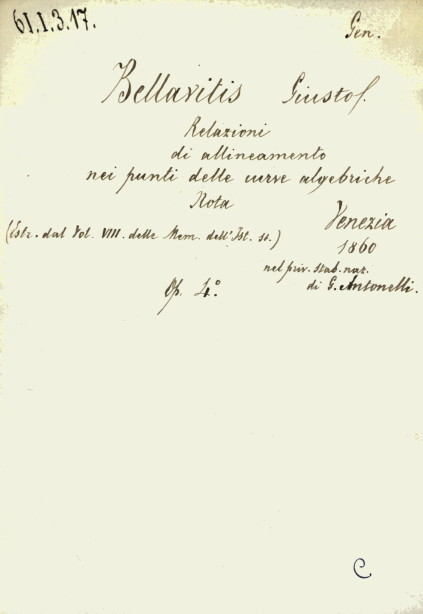 61.1.3.17. Gen.
Bellavitis Giusto f.
Relazioni
di allineamento
nei punti delle curve algebriche
Nota
(Estr. dal Vol. VIII. delle Mem. dell'Ist. st.) Venezia
1860
nel priv. stab. naz.
di G. Antonelli.
Op. 4.º
C